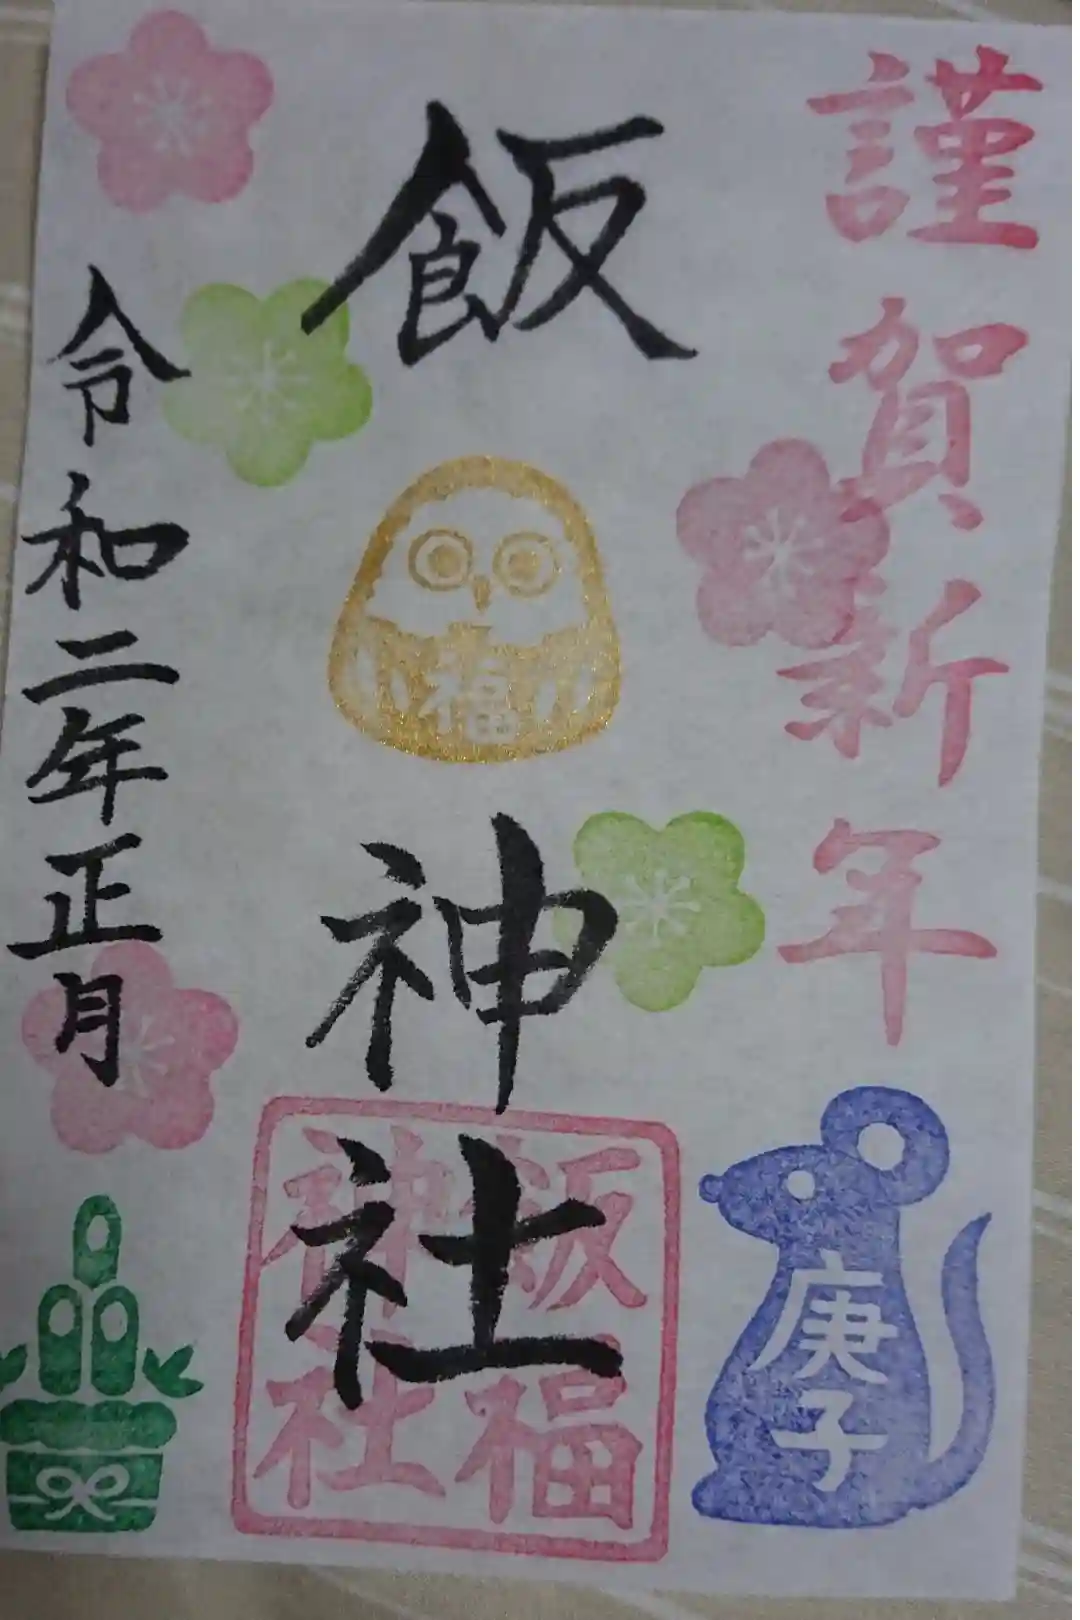 謹賀新年
庚子
飯福神社
飯福
神社
令和二年正月